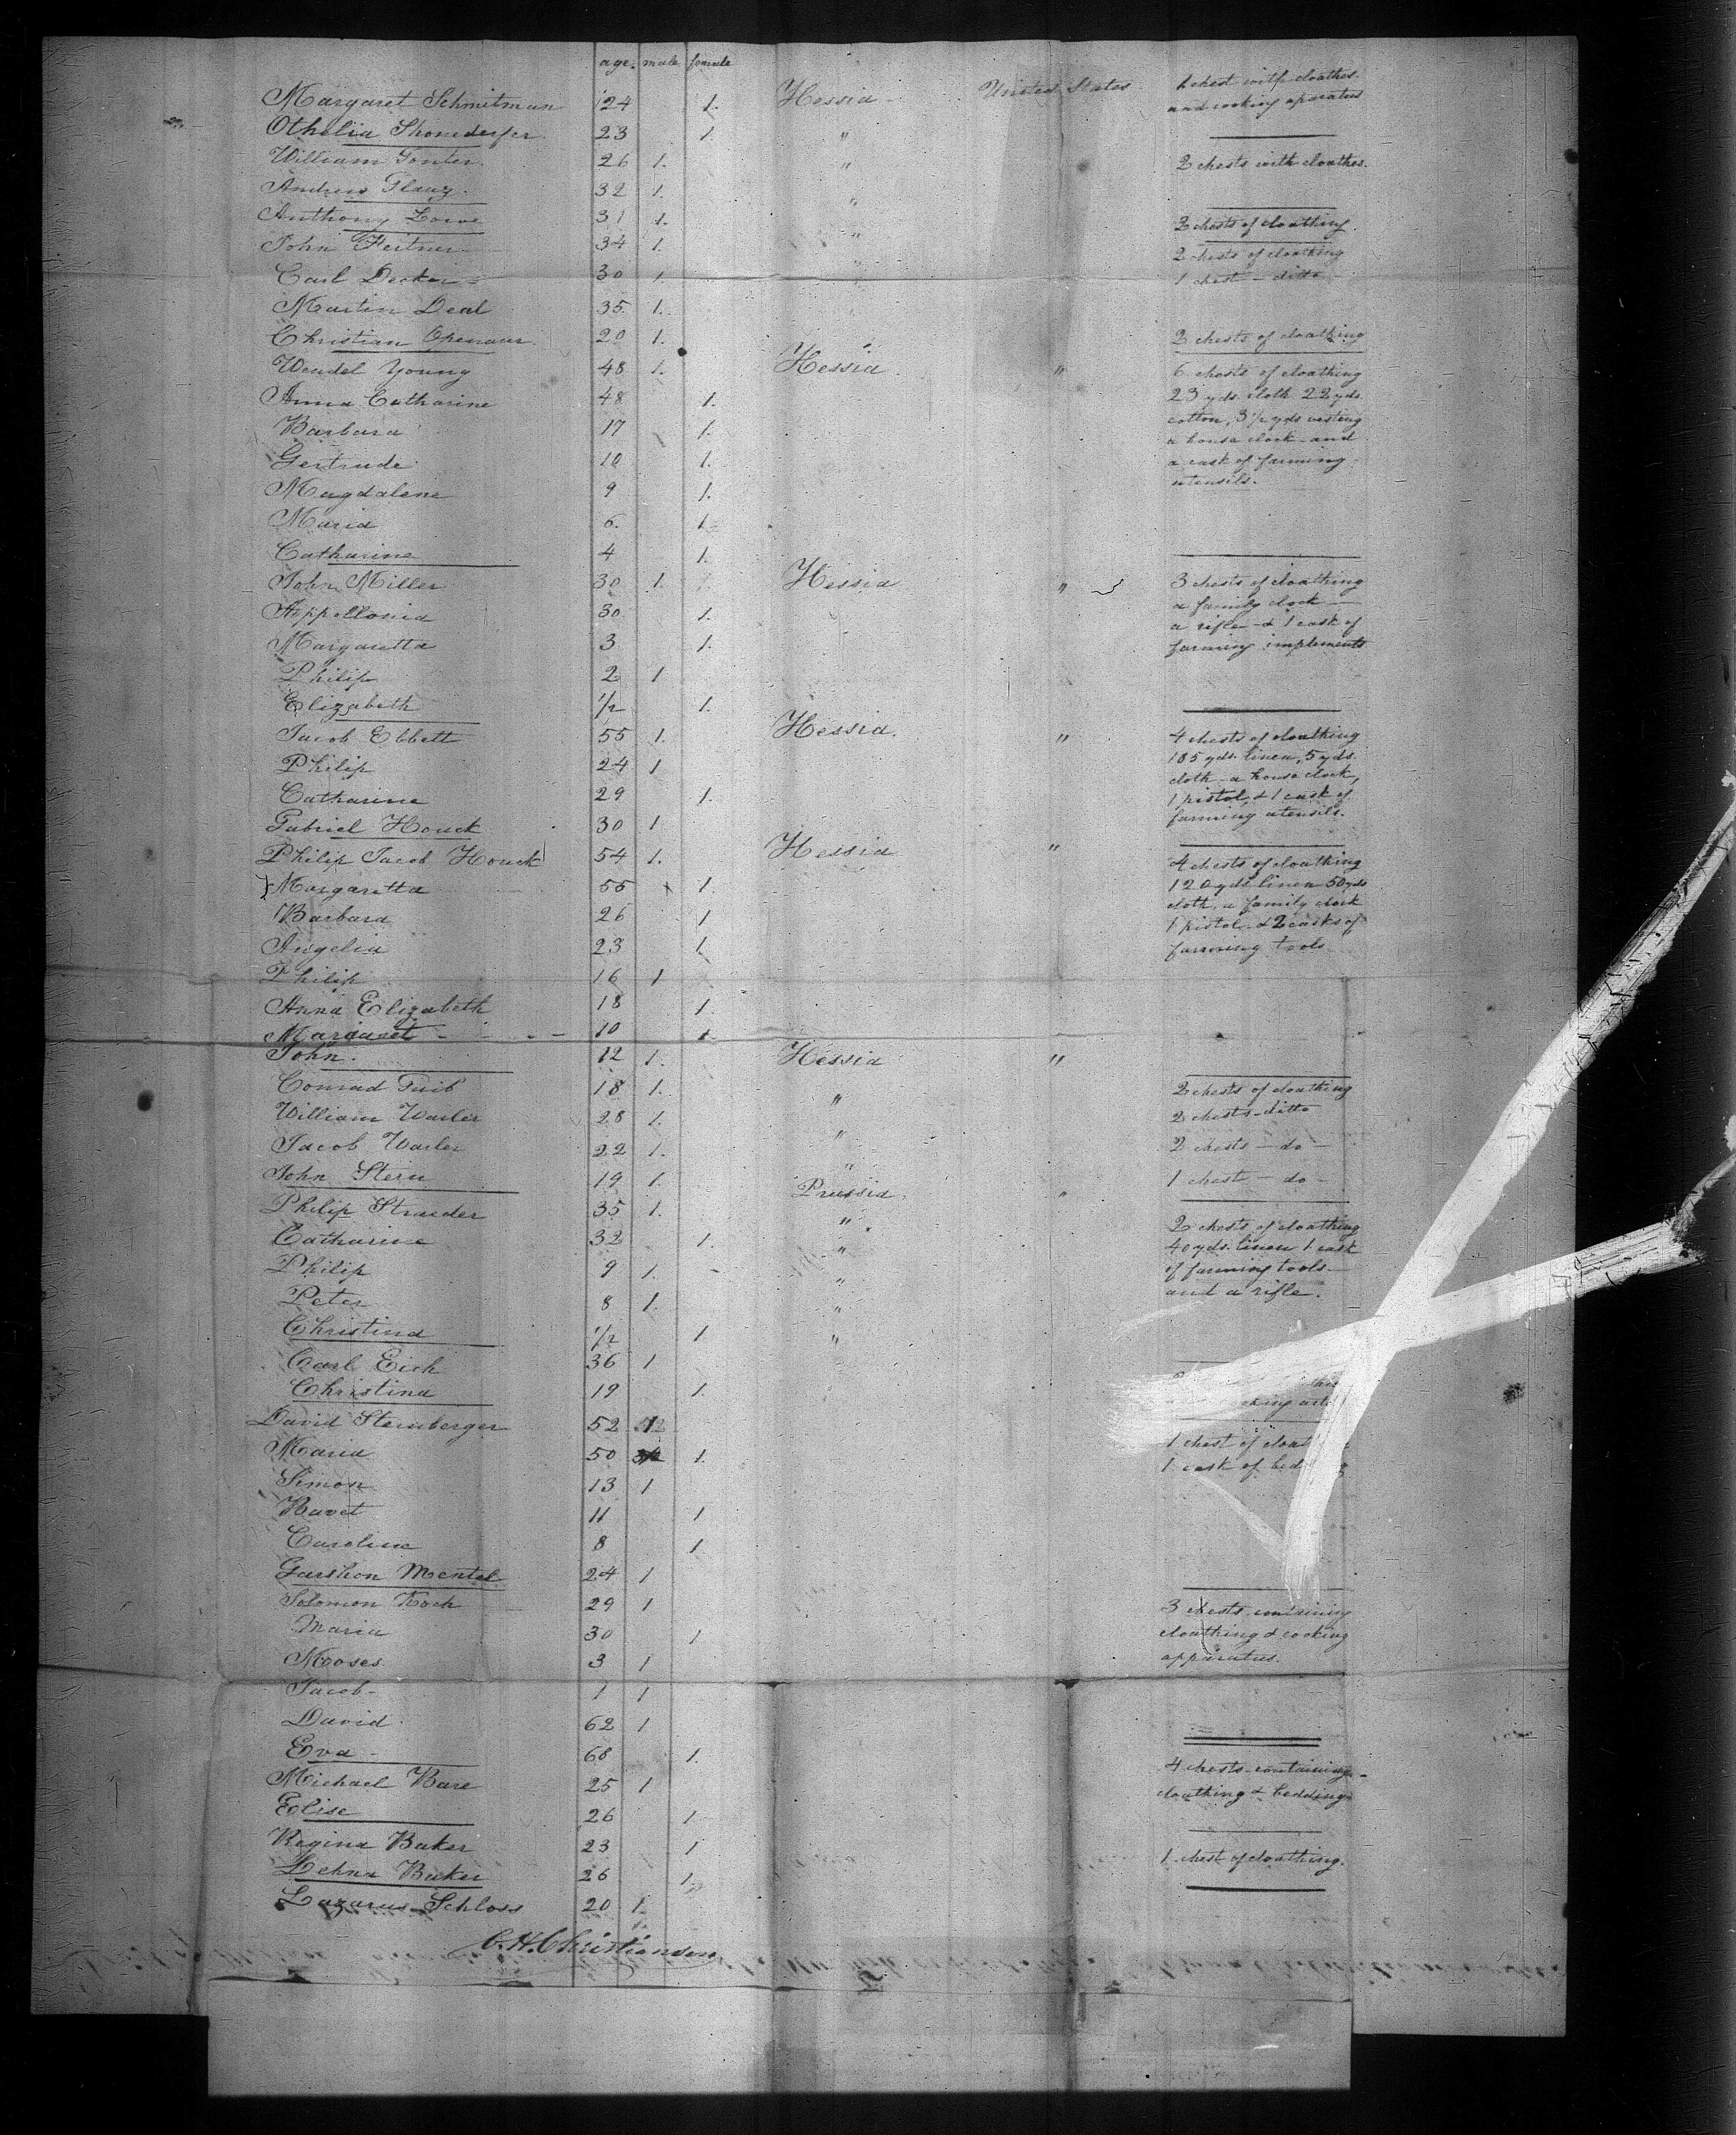 age. male female
Margaret Schmitman 24 1. Hessia United States 1 chest with cloathes.
and cooking aparatus
Othelia Shonederfer 23 1. "
William Gonter. 26 1. " 2 chests with cloathes.
Andrew 32 1. "
Anthony Lowe 31 1. " 2 chests of cloathing.
John Feitner 34 1. 2 chests of cloathing
Carl Decker 30 1. 1 chest - ditto
Martin Deal 35 1.
Christian Openauer. 20 1. 2 chests of cloathing
Wendel Young 48 1. Hessia. " 6 chests of cloathing
Anna Catharine 48 1. 23 yds. cloth 22 yds.
Barbara 17 1. cotton, 3 1/2 yds vesting
a house clock and
Gertrude 10 1. a cask of farming
Magdalene 9 1. utensils.
Maria 6. 1.
Catharine 4 1.
John Miller 30 1. Hessia " 3 chests of cloathing
Appollonia 30 1. a family clock —
a rifle & 1 cask of
Margaretta 3 1. farming implements
Philip 2 1
Elizabeth 1/2 1.
Jacob Ebbett 55 1. Hessia. " 4 chests of cloathing
Philip 24 1 185 yds. linen, 5 yds.
cloth a house clock,
Catharine 29 1. 1 pistol & 1 cask of
Gabriel Houck 30 1 farming utensils.
Philip Jacob Houck 54 1. Hessia " 4 chests of cloathing
Margaretta 55 1. 120 yds linen 50 yds
cloth, a family clock
Barbara 26 1 1 pistol & 2 casks of
Angelia 23 1. farming tools.
Philip 16 1
Anna Elizabeth 18 1
Margaret - - - 10 1.
John. 12 1. Hessia "
Conrad 18 1. " 2 chests of cloathing
William Warler 28 1. " 2 chests - ditto
Jacob Warler 22 1. " 2 chests — do —
John Stern 19 1. Prussia. " 1 chest — do -
Philip Strueder 35 1. " 2 chests of cloathing
Catharine 32 1. " 40 yds. linen 1 cask
Philip 9 1. " of farming tools
Peter 8 1. " and a rifle.
Christina 1/2 1 "
Carl Eich 36 1
Christina 19 1.
David Sternberger 52 1 1 chest of
Maria 50 1. 1 cask of
Simon 13 1
Bavet 11 1
Caroline 8 1
Garshon Mentel 24 1
Solomon Koch 29 1 3 chests containing
Maria 30 1 cloathing & cooking
Moses 3 1 apparatus.
Jacob - 1 1
David 62 1
Eva - 68 1.
Michael Bare 25 1 4 chests containing
cloathing & bedding
Eolise 26 1.
Regina Baker 23 1 1 chest of cloathing.
Lehna Baker 26 1.
Lazarus Schloss 20 1.
C. H. Christiansen